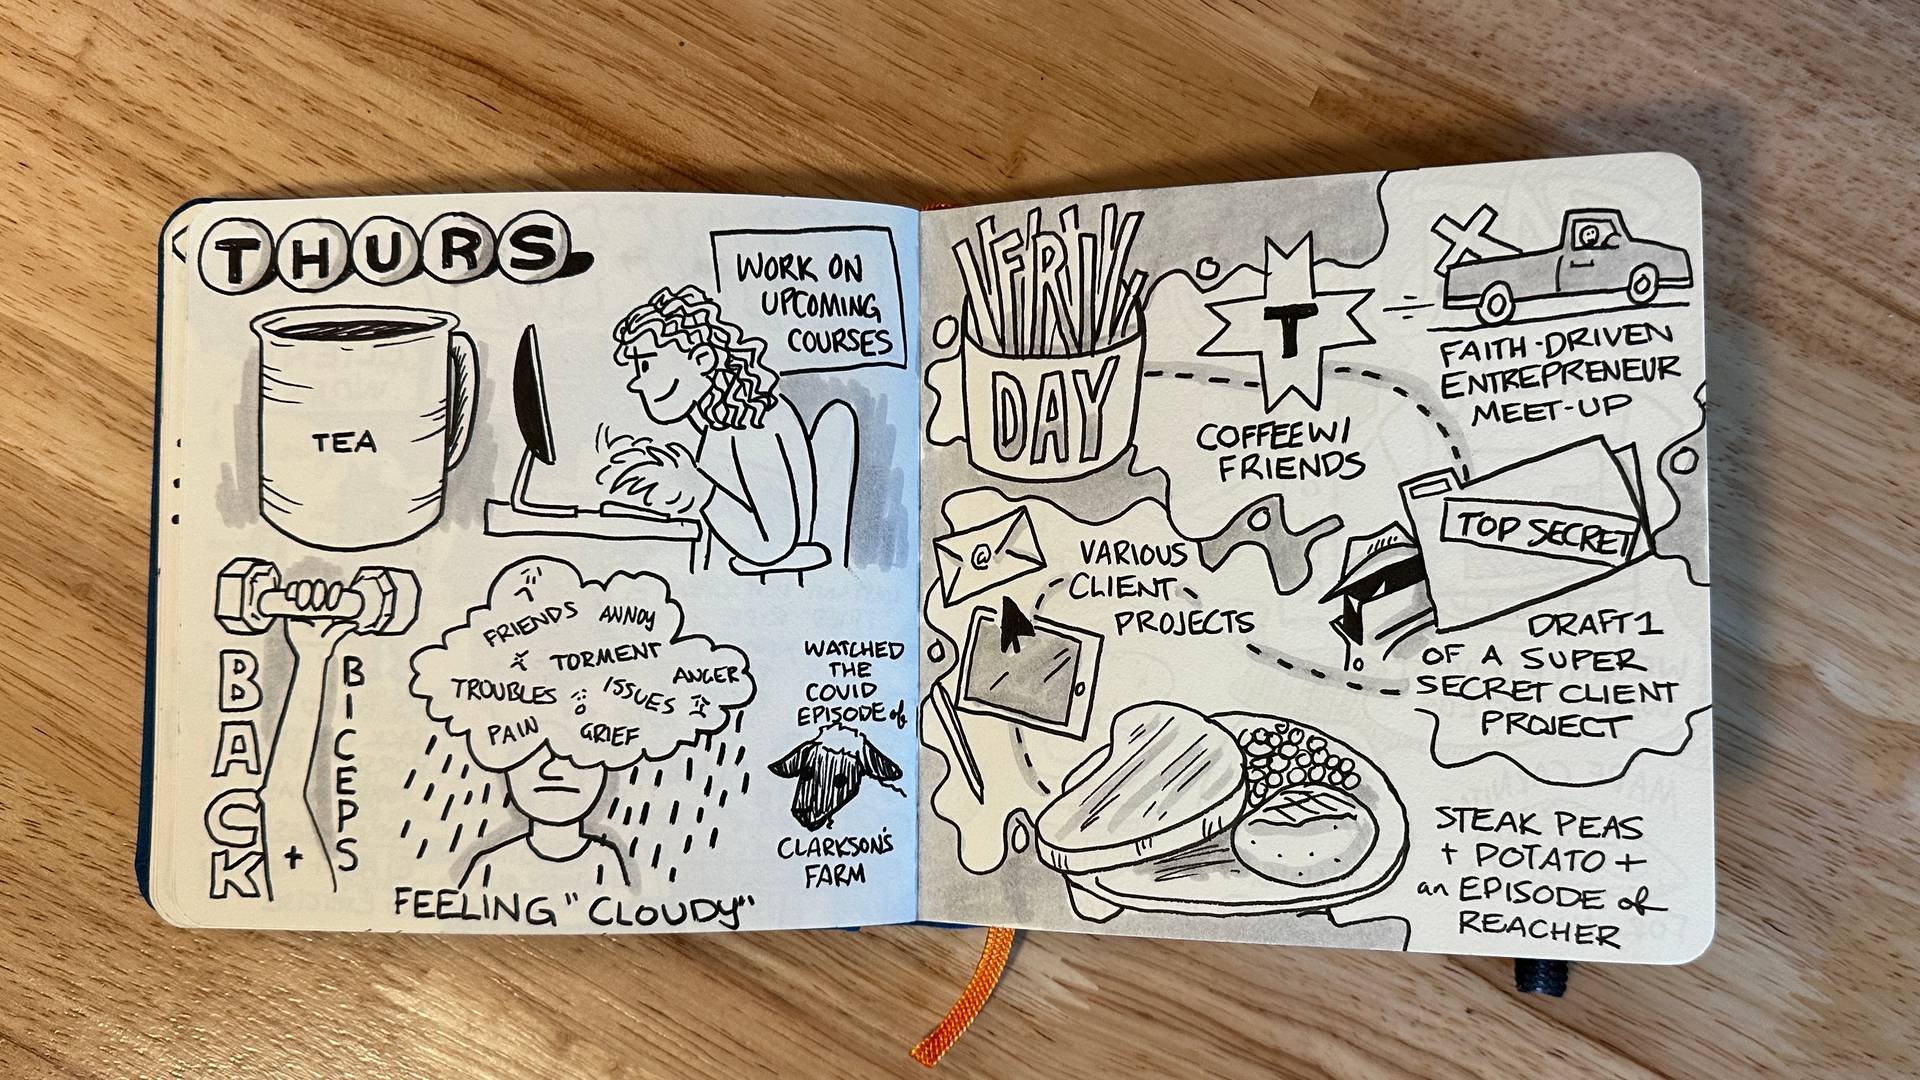 THURS.
TEA
WORK ON
UPCOMING
COURSES
BACK
+
BICEPS
FRIENDS ANNOY
TORMENT
ANGER
TROUBLES ISSUES
PAIN GRIEF
FEELING "CLOUDY"
WATCHED
THE
COVID
EPISODE of
CLARKSON'S
FARM
FRI
DAY
T
COFFEE W/
FRIENDS
FAITH-DRIVEN
ENTREPRENEUR
MEET-UP
TOP SECRET
DRAFT 1
OF A SUPER
SECRET CLIENT
PROJECT
@
VARIOUS
CLIENT
PROJECTS
STEAK PEAS
+ POTATO +
an EPISODE of
REACHER